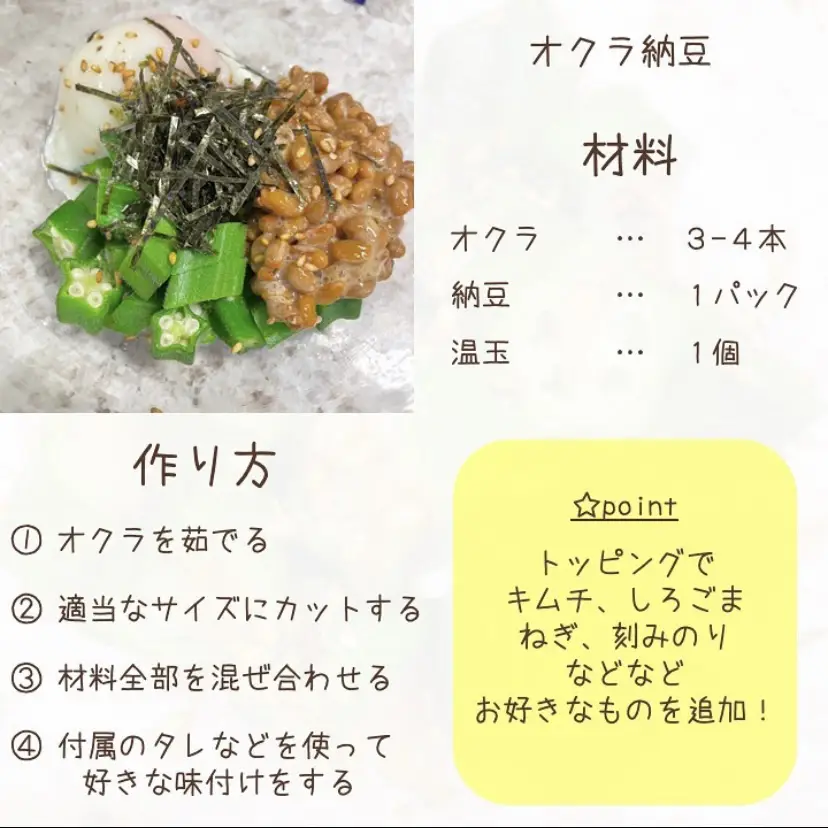 オクラ納豆
材料
オクラ … 3-4本
納豆 … 1パック
温玉 … 1個
作り方
① オクラを茹でる
② 適当なサイズにカットする
③ 材料全部を混ぜ合わせる
④ 付属のタレなどを使って
好きな味付けをする
☆point
トッピングで
キムチ、しろごま
ねぎ、刻みのり
などなど
お好きなものを追加！